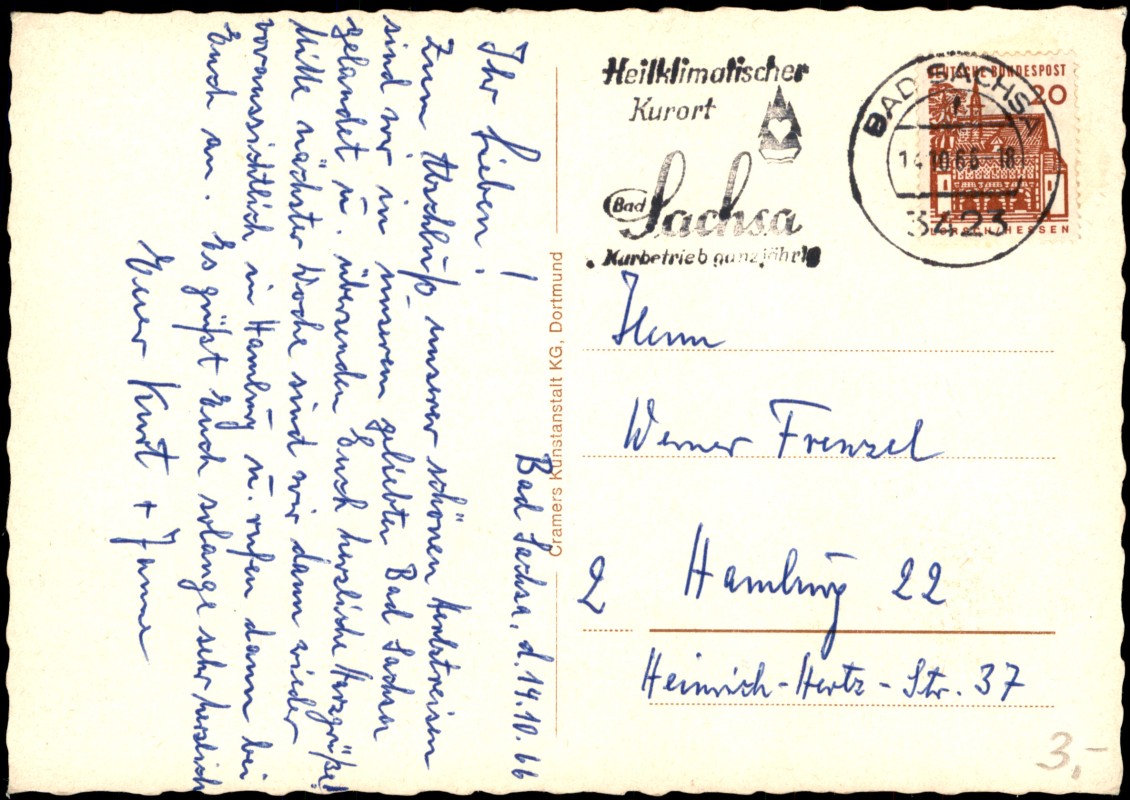 Bad Sachsa, d. 14.10.66
Ihr Lieben!
Zum Abschluß unserer schönen Herbstreisen
sind wir in unserem geliebten Bad Sachsa
gelandet u. übersenden Euch herzliche Harzgrüße!
Mitte nächster Woche sind wir dann wieder
voraussichtlich in Hamburg u. rufen dann bei
Euch an. Es grüßt Euch solange sehr herzlich
Euer Kurt +
Cramers Kunstanstalt KG, Dortmund
Heilklimatischer
Kurort
Bad Sachsa
Kurbetrieb ganzjährig
BAD SACHSA
14.10.66-18
3423
DEUTSCHE BUNDESPOST
20
LORSCH/HESSEN
Herrn
Werner Frenzel
2 Hamburg 22
Heinrich-Hertz-Str. 37
3,-